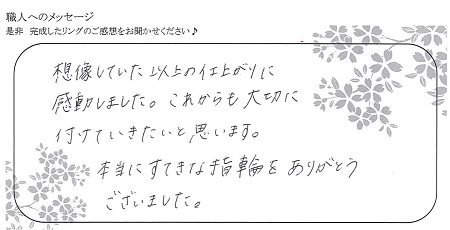 職人へのメッセージ
是非 完成したリングのご感想をお聞かせください♪
想像していた以上の仕上がりに
感動しました。これからも大切に
付けていきたいと思います。
本当にすてきな指輪をありがとう
ございました。